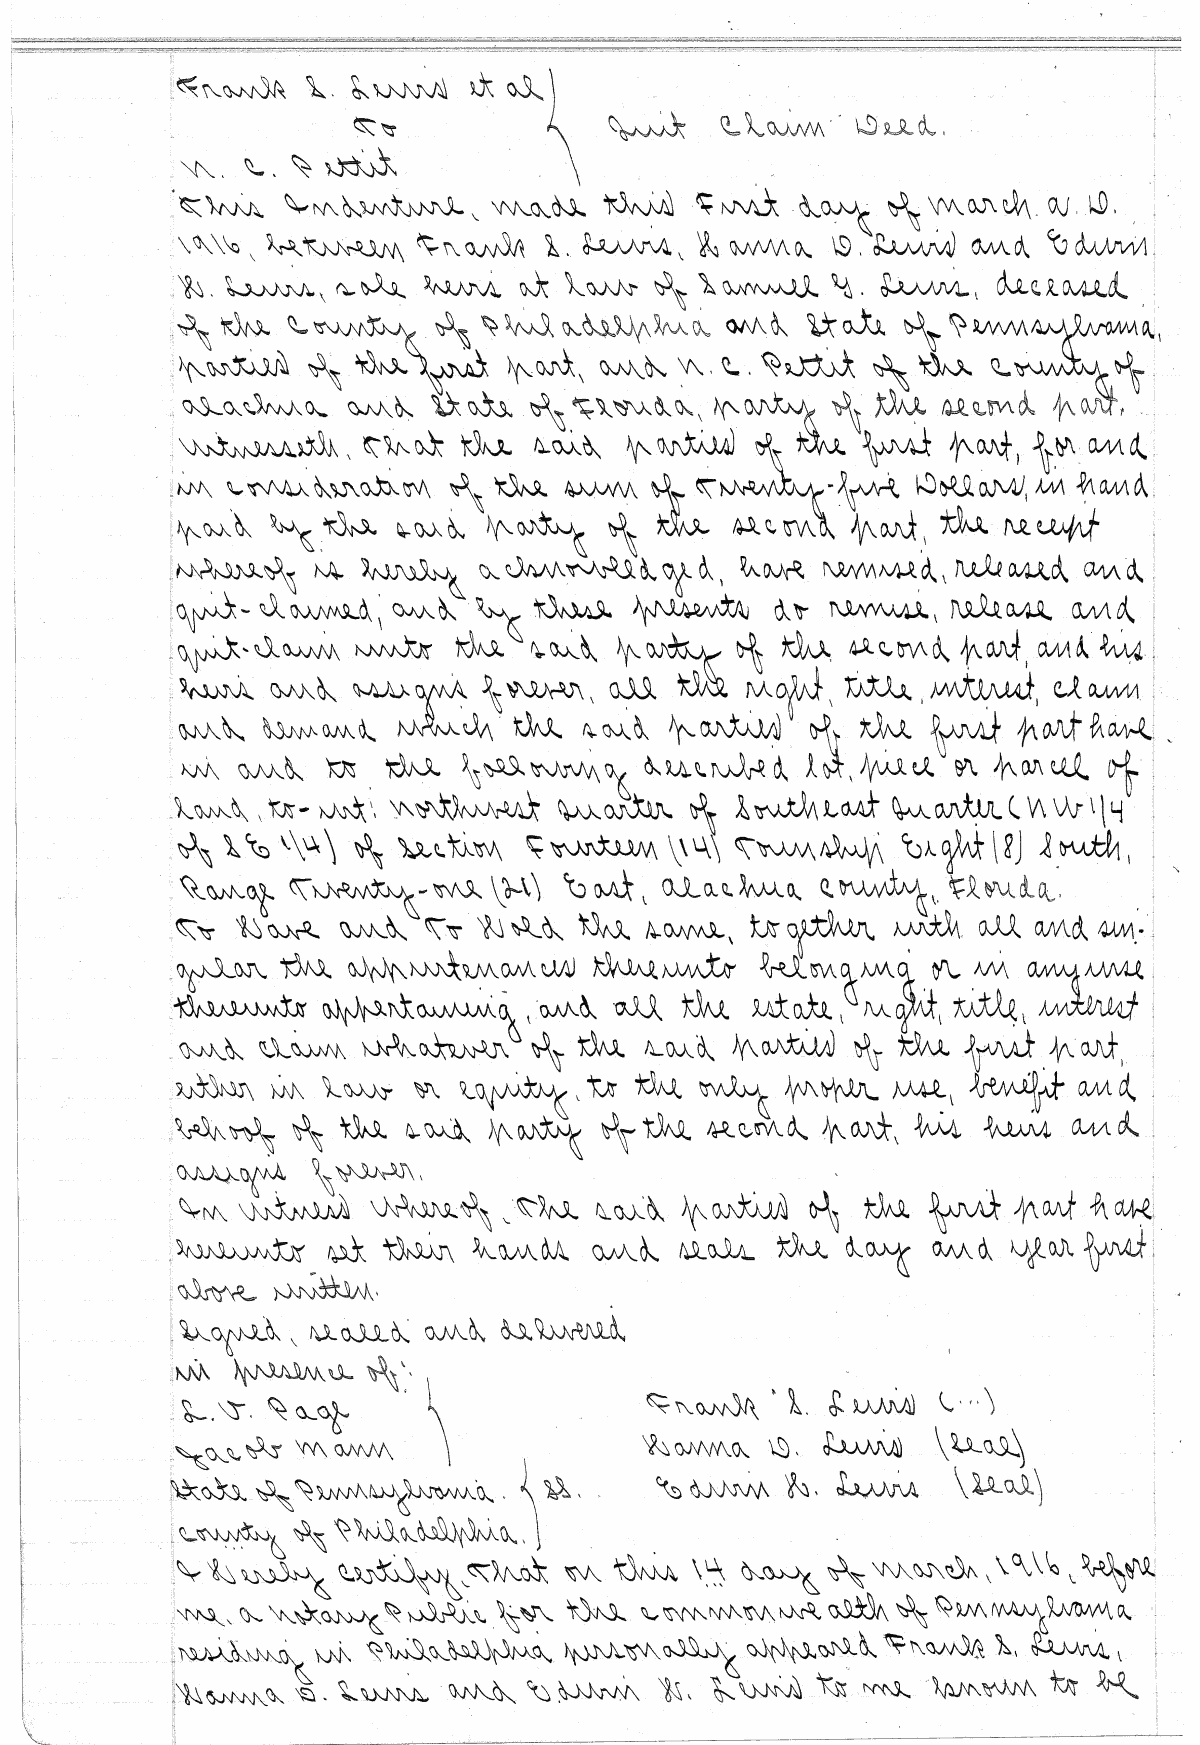 Frank S. Lewis et al
To
Quit Claim Deed.
N. C. Pettit
This Indenture, made this First day of March A. D.
1916, between Frank S. Lewis, Hanna D. Lewis and Edwin
H. Lewis, sole heirs at law of Samuel G. Lewis, deceased
of the County of Philadelphia and State of Pennsylvania,
parties of the first part, and N. C. Pettit of the County of
Alachua and State of Florida, party of the second part,
Witnesseth, That the said parties of the first part, for and
in consideration of the sum of Twenty-five Dollars, in hand
paid by the said party of the second part, the receipt
whereof is hereby acknowledged, have remised, released and
quit-claimed, and by these presents do remise, release and
quit-claim unto the said party of the second part, and his
heirs and assigns forever, all the right, title, interest, claim
and demand which the said parties of the first part have
in and to the following described lot, piece or parcel of
land, to-wit: Northwest Quarter of Southeast Quarter (NW 1/4
of SE 1/4) of Section Fourteen (14) Township Eight (8) South,
Range Twenty-one (21) East, Alachua County, Florida.
To Have and To Hold the same, together with all and sin-
gular the appurtenances thereunto belonging or in anywise
thereunto appertaining, and all the estate, right, title, interest
and claim whatever of the said parties of the first part,
either in law or equity, to the only proper use, benefit and
behoof of the said party of the second part, his heirs and
assigns forever.
In Witness Whereof, The said parties of the first part have
hereunto set their hands and seals the day and year first
above written.
Signed, sealed and delivered
in presence of:
L. V. Page Frank S. Lewis (...)
Jacob Mann Hanna D. Lewis (Seal)
State of Pennsylvania. SS. Edwin H. Lewis (Seal)
County of Philadelphia.
I Hereby Certify, That on this 14 day of March, 1916, before
me, a Notary Public for the Commonwealth of Pennsylvania
residing in Philadelphia personally appeared Frank S. Lewis,
Hanna D. Lewis and Edwin H. Lewis to me known to be